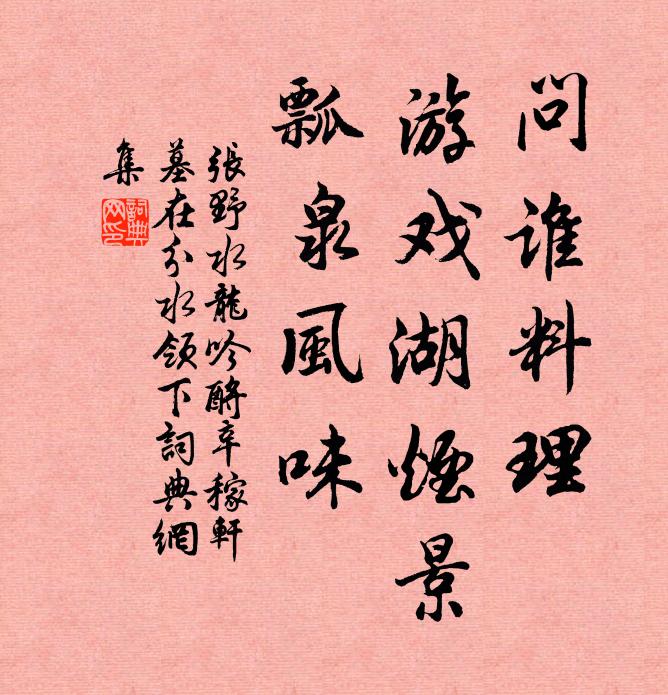 问谁料理
游戏湖煙景
瓢泉風味
張野水龍吟酹辛稼軒
墓在分水領下詞典網
集
詞典網印